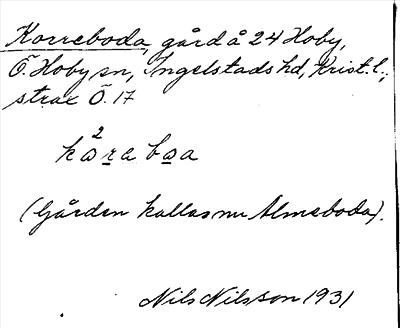 Korreboda, gård å 24 Hoby,
Ö. Hoby sn, Ingelstads hd, Krist. l.,
strax Ö. 17
2
kara baa
(Gården kallas nu Almeboda).
Nils Nilsson 1931